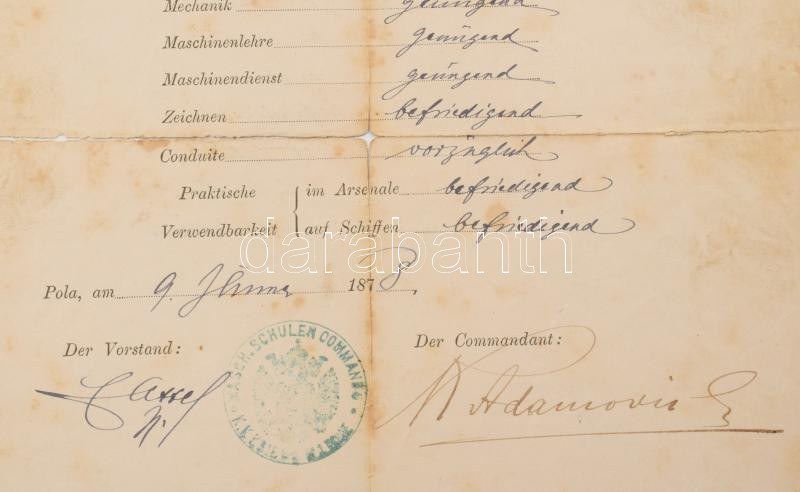 Mechanik genügend
Maschinenlehre genügend
Maschinendienst genügend
Zeichnen befriedigend
Conduite vorzüglich
Praktische im Arsenale befriedigend
Verwendbarkeit auf Schiffen befriedigend
darabanth
Pola, am 9. 1878.
Der Vorstand: Der Commandant:
MASCH. SCHULEN COMMANDO
Adamovic